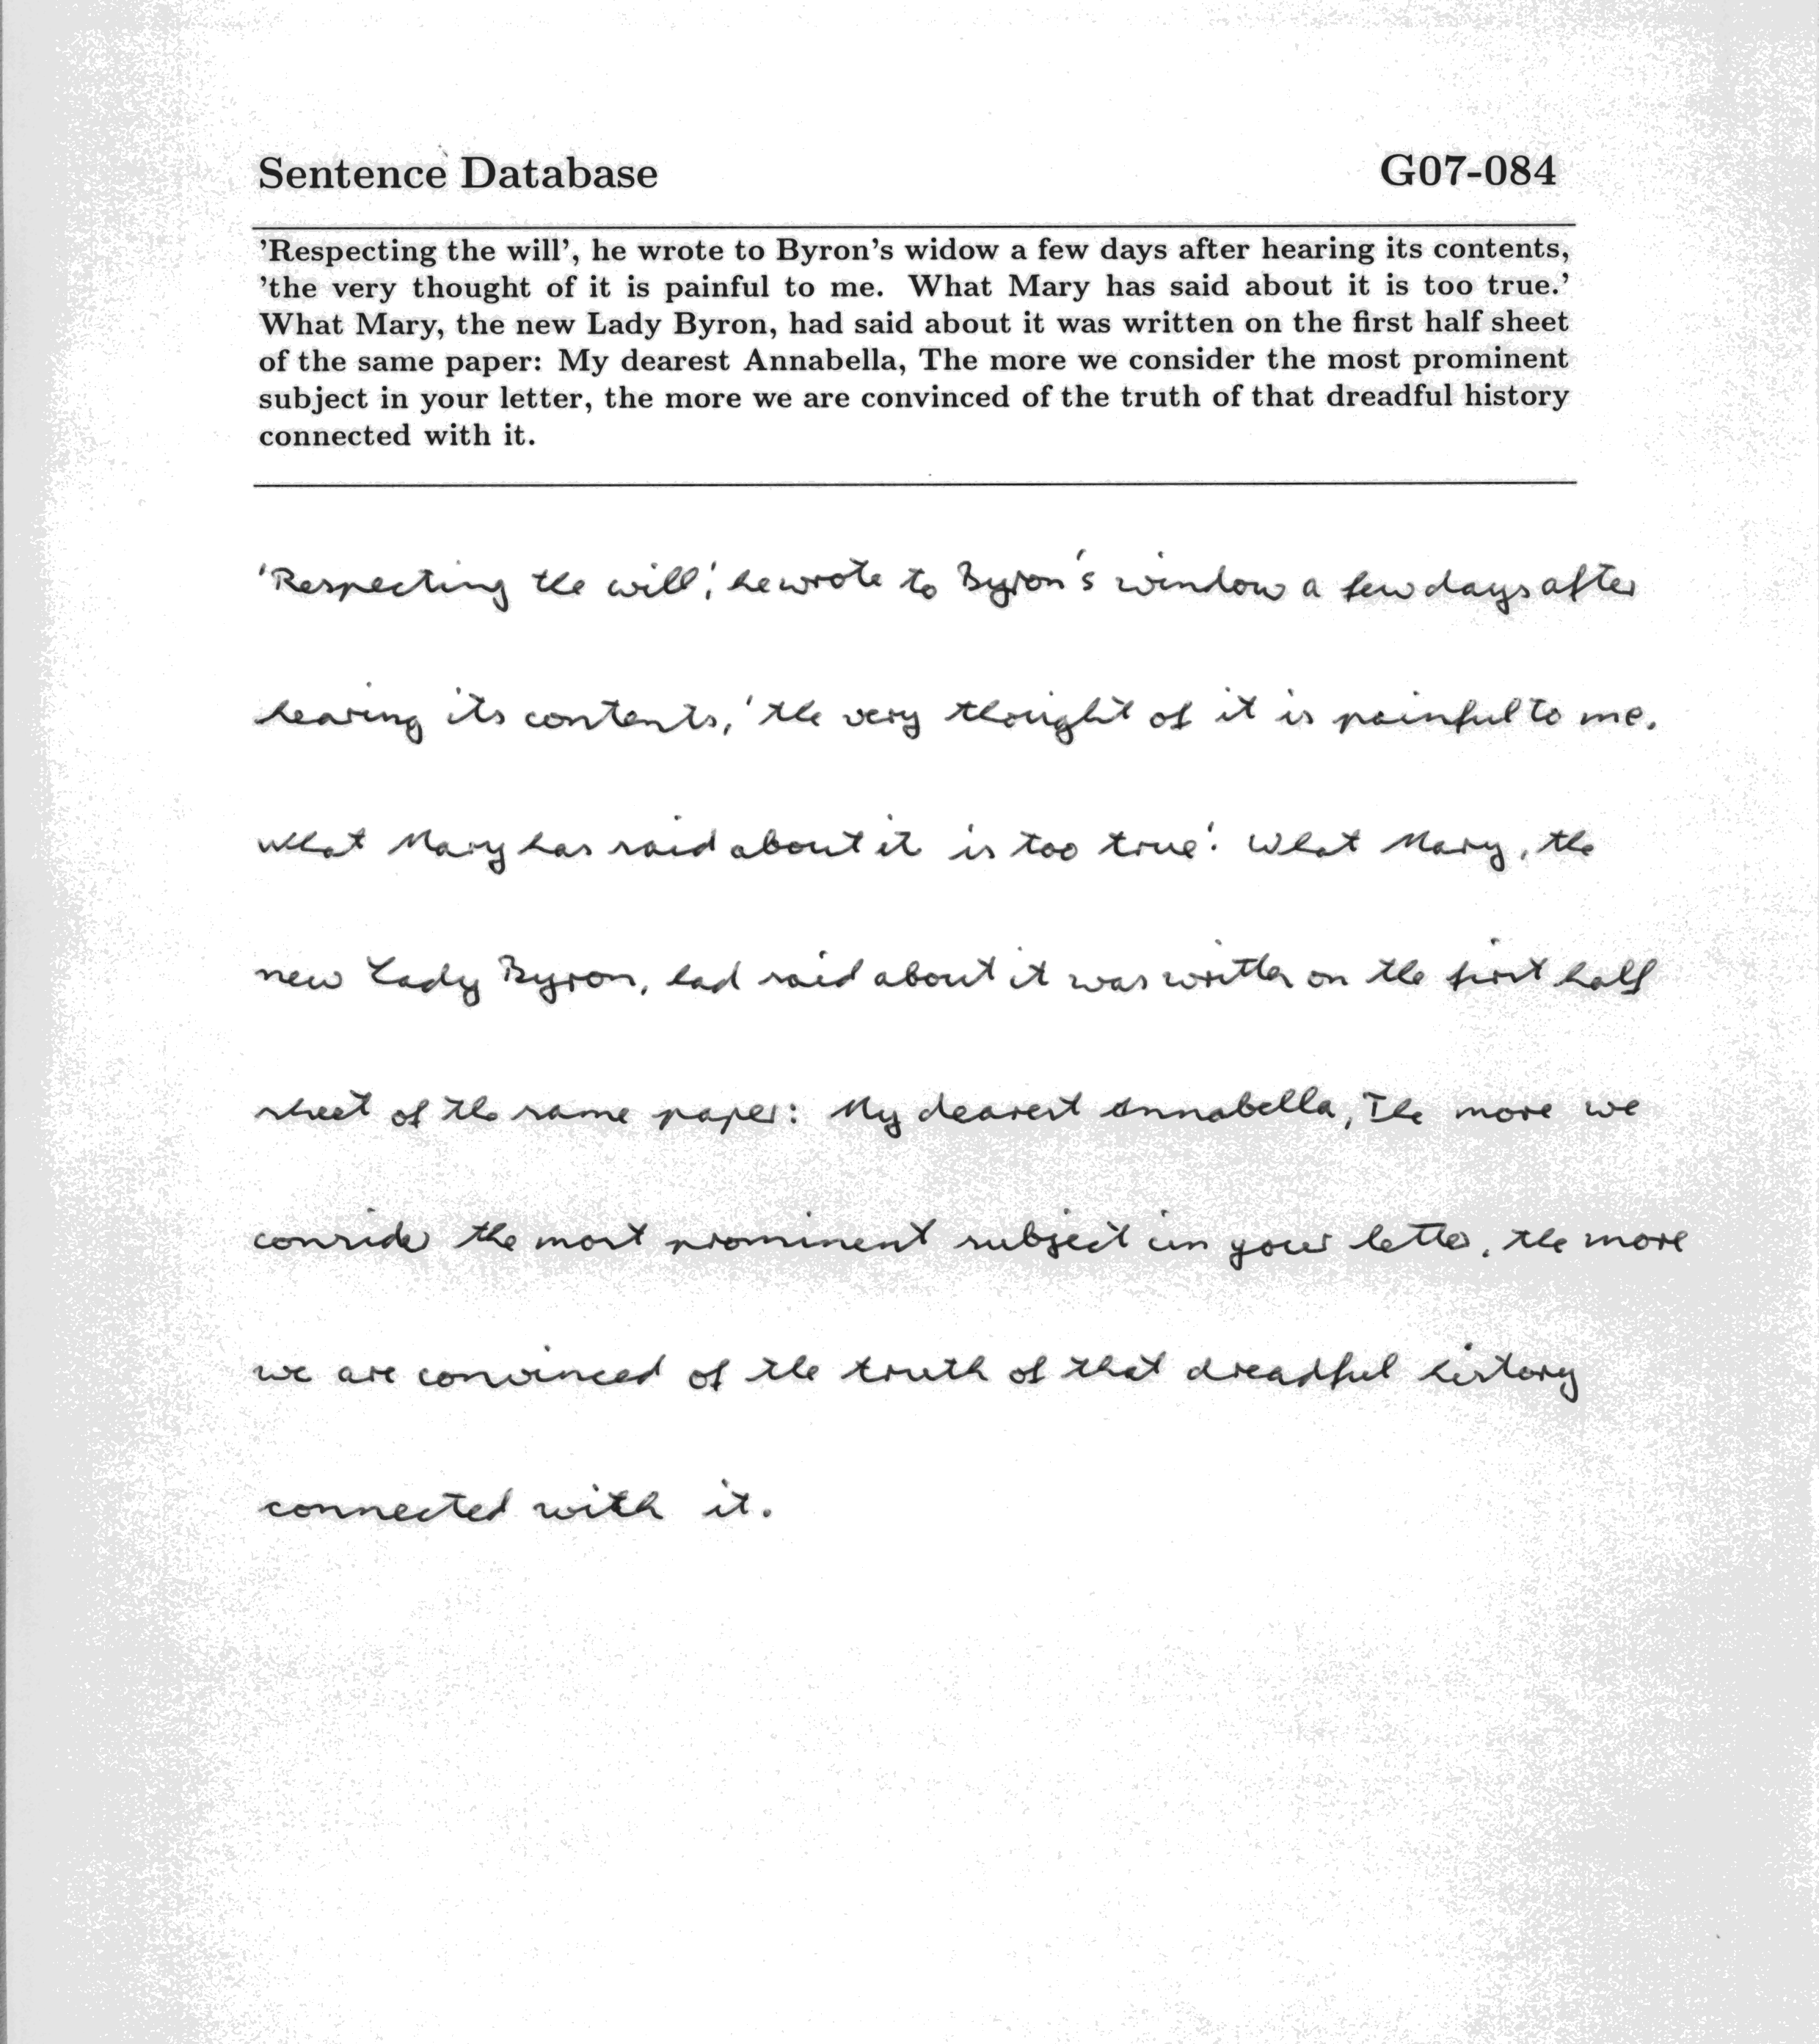 Sentence Database G07-084
'Respecting the will', he wrote to Byron's widow a few days after hearing its contents,
'the very thought of it is painful to me. What Mary has said about it is too true.'
What Mary, the new Lady Byron, had said about it was written on the first half sheet
of the same paper: My dearest Annabella, The more we consider the most prominent
subject in your letter, the more we are convinced of the truth of that dreadful history
connected with it.
'Respecting the will', he wrote to Byron's window a few days after
hearing its contents, 'the very thought of it is painful to me.
What Mary has said about it is too true.' What Mary, the
new Lady Byron, had said about it was written on the first half
sheet of the same paper: My dearest Annabella, The more we
consider the most prominent subject in your letter, the more
we are convinced of the truth of that dreadful history
connected with it.